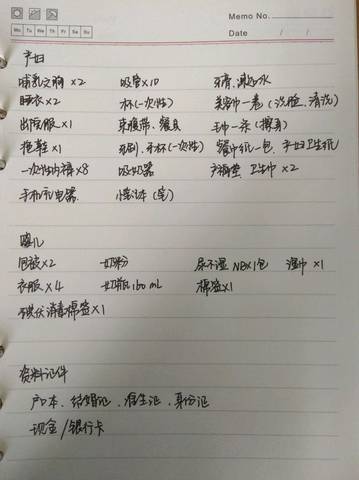 Memo No.
Mo Tu We Th Fr Sa Su
Date / /
产妇
哺乳文胸×2 吸管×10 牙膏、漱口水
睡衣×2 杯(一次性) 美容巾一卷(洗脸、清洗)
出院服×1 束腹带、餐具 毛巾一条(擦身)
拖鞋×1 牙刷、牙杯(一次性) 餐巾纸一包、产妇卫生纸
一次性内裤×8 吸奶器 产褥垫、卫生巾×2
手机充电器
婴儿
包被×2 奶粉 尿不湿NB×1包 湿巾×1
衣服×4 奶瓶160mL 棉签×1
碘伏消毒棉签×1
资料证件
户口本、结婚证、准生证、身份证
现金/银行卡